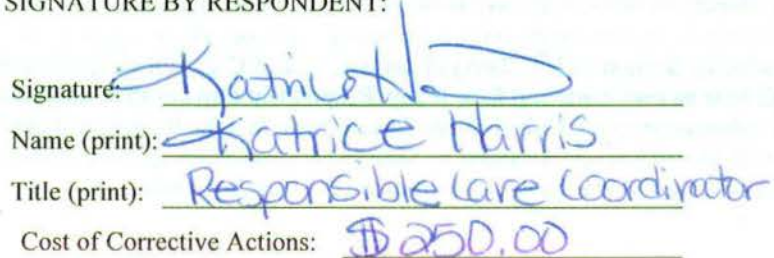 SIGNATURE BY RESPONDENT:
Signature: Katrice H
Name (print): Katrice Harris
Title (print): Responsible Care Coordinator
Cost of Corrective Actions: $250.00